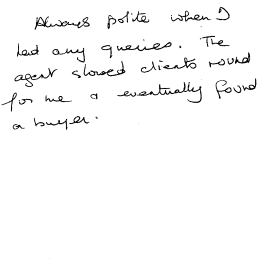 Always polite when I
had any queries. The
agent showed clients round
for me & eventually found
a buyer.